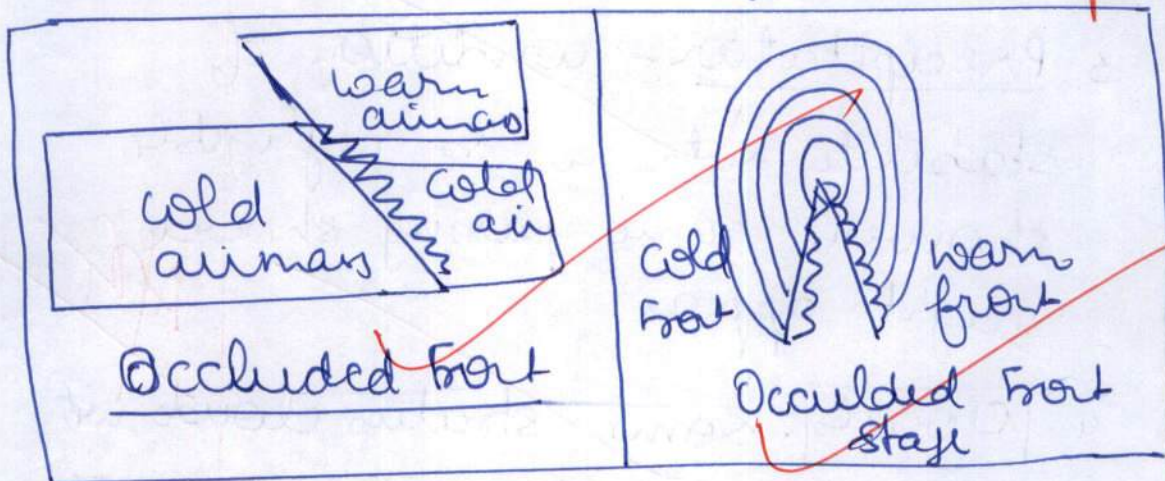 warm
airmass
cold
airmass
cold
air
Occluded Front
cold
Front
warm
front
Occulded Front
stage